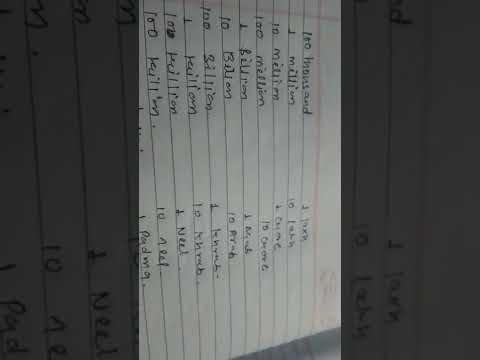 100 thousand 1 lakh
1 million 10 lakh
10 million 1 crore
100 million 10 crore
1 Billion 1 Arab
10 Billion 10 Arab
100 Billion 1 khrab.
1 trillion 10 khrab.
100 trillion 1 Neel.
100 trillion. 10 neel.
1 Padma.